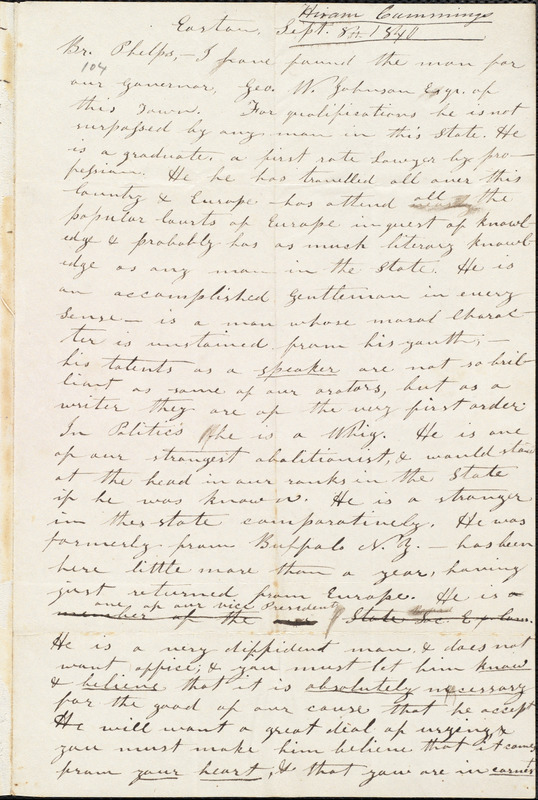 Hiram Cummings
Easton, Sept. 8th. 1840
Br. Phelps, – I have found the man for
104
our Governor, Geo. W. Johnson Esqr. of
this Town. For qualifications he is not
surpassed by any man in this State. He
is a graduate, a first rate Lawyer by pro-
fession. He he has travelled all over this
Country & Europe – has attend all the
popular Courts of Europe in quest of knowl-
edge & probably has as much literary knowl-
edge as any man in the State. He is
an accomplished Gentleman in every
sense – is a man whose moral Charac-
ter is unstained from his youth; –
his talents as a speaker are not so bril-
liant as some of our orators, but as a
writer they are of the very first order.
In Politic's he is a Whig. He is one
of our strongest abolitionist, & would stand
at the head in our ranks in the State
if he was known. He is a stranger
in this state comparatively. He was
formerly from Buffalo N.Y. – has been
here little more than a year, having
just returned from Europe. He is a
one of our vice Presidents
member of the State Soc. Ex Com.
He is a very diffident man, & does not
want office; & you must let him know
& believe that it is absolutely necessary
for the good of our cause that he accept
He will want a great dial of urging, &
you must make him believe that it comes
from your heart, & that you are in earnest